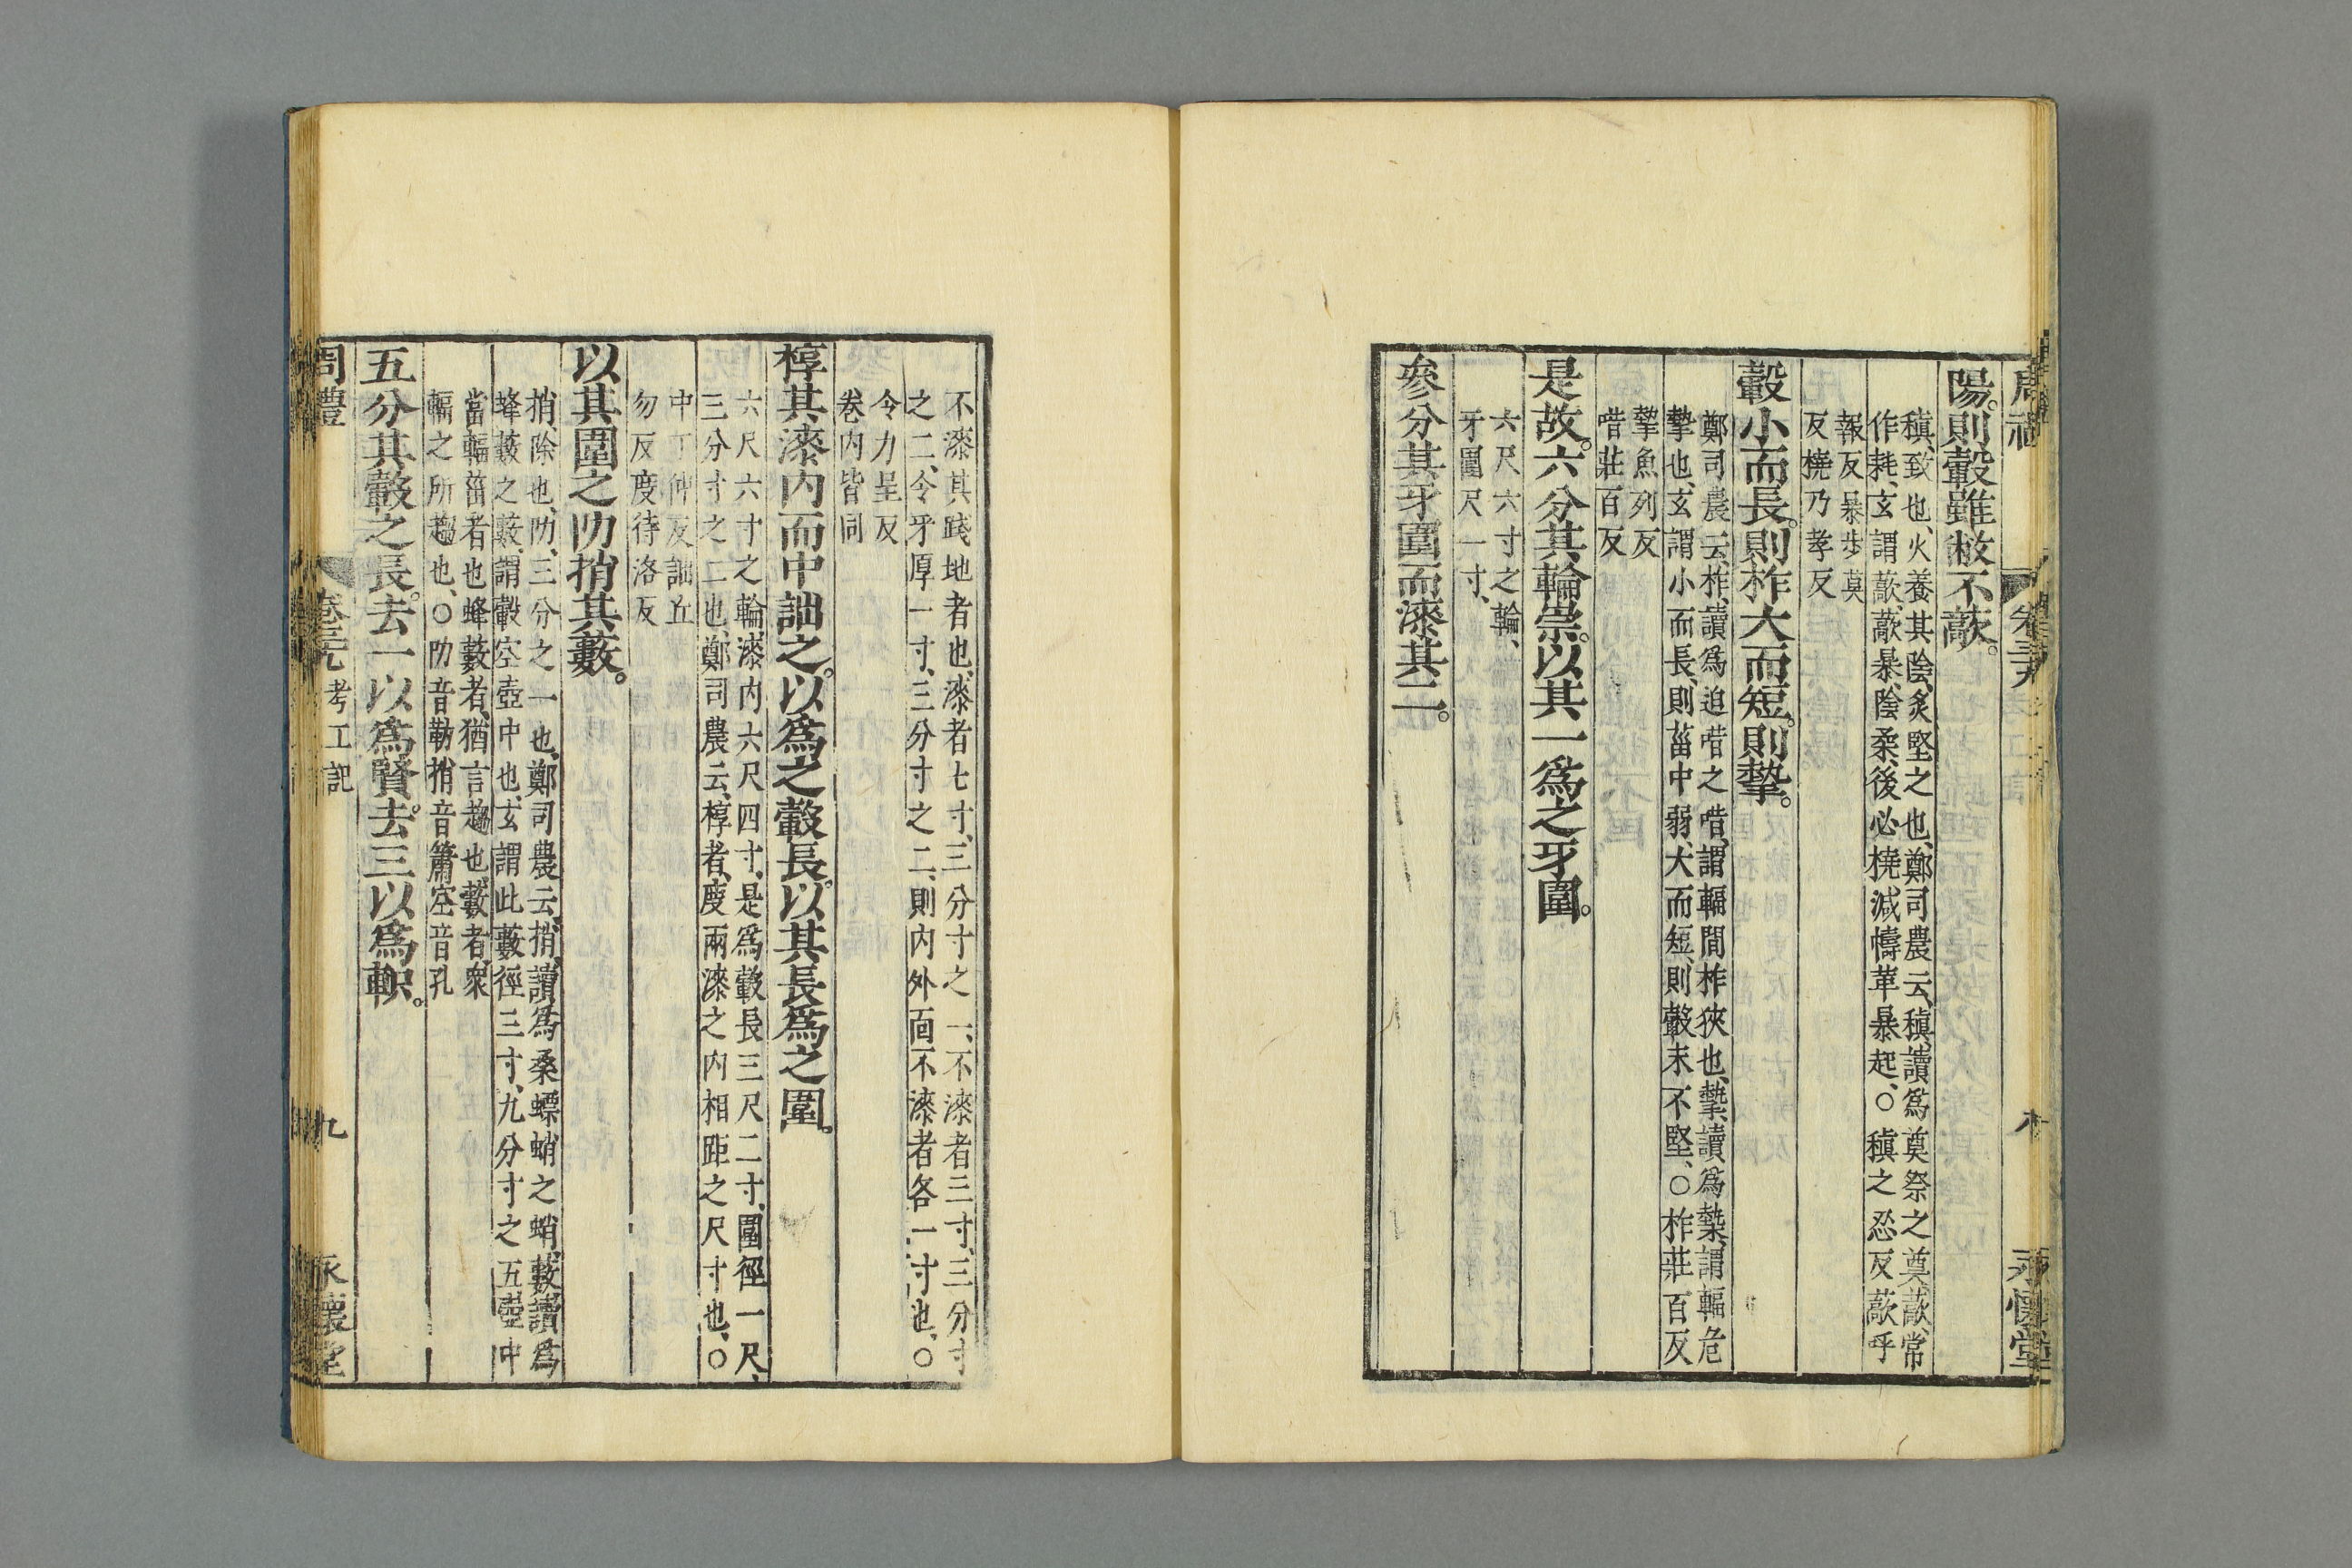 周禮 卷三十九 八 永懷堂
陽。則轂雖敝不藃。
稹、致也、火養其陰、炙堅之也、鄭司農云、稹、讀爲奠祭之奠、藃、常
作耗、玄謂藃、藃暴、陰柔、後必橈減幬革暴起、○稹之忍反藃呼
報反暴步莫
反橈乃孝反
轂小而長。則柞。大而短。則摯。
鄭司農云、柞、讀爲迫唶之唶、謂輻間柞狹也、摯、讀爲槷、謂輻危
摯也、玄謂小而長、則菑中弱、大而短、則轂末不堅、○柞莊百反
摯魚列反
唶莊百反
是故。六分其輪崇。以其一爲之牙圍。
六尺六寸之輪、
牙圍尺一寸、
參分其牙圍而漆其二。
不漆其踐地者也、漆者七寸、三分寸之一、不漆者三寸、三分寸
之二、令牙厚一寸、三分寸之二、則內外面不漆者各一寸也、○
令力呈反
卷內皆同
椁其漆內而中詘之。以爲之轂長。以其長爲之圍。
六尺六寸之輪、漆內六尺四寸、是爲轂長三尺二寸、圍徑一尺、
三分寸之二也、鄭司農云、椁者、度兩漆之內相距之尺寸也、○
中丁仲反詘丘
勿反度待洛反
以其圍之阞捎其藪。
捎除也、阞、三分之一也、鄭司農云、捎、讀爲桑螵蛸之蛸、藪、讀爲
蜂藪之藪、謂轂空壺中也、玄謂此藪徑三寸、九分寸之五、壺中
當輻菑者也、蜂藪者、猶言趨也、藪者、衆
輻之所趨也、○阞音勒、捎音簫空音孔
五分其轂之長。去一以爲賢。去三以爲軹。
周禮 卷三十九 考工記 九 永懷堂